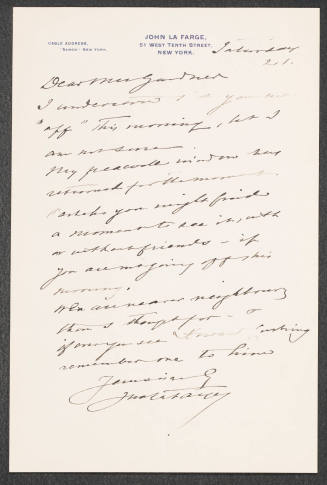 CABLE ADDRESS,
NEW YORK.
JOHN LA FARGE,
51 WEST TENTH STREET,
NEW YORK.
Saturday
21.
Dear Mrs Gardner
I understand that you are
"off" this morning, but I
am not sure.
My peacock window has
returned for the moment.
you might find
a moment to see it, with
or without friends - if
you are not going off this
morning.
We are nearer neighbours
than I thought for -
if ever you see
remember me to him
Yours sincerely
John La Farge